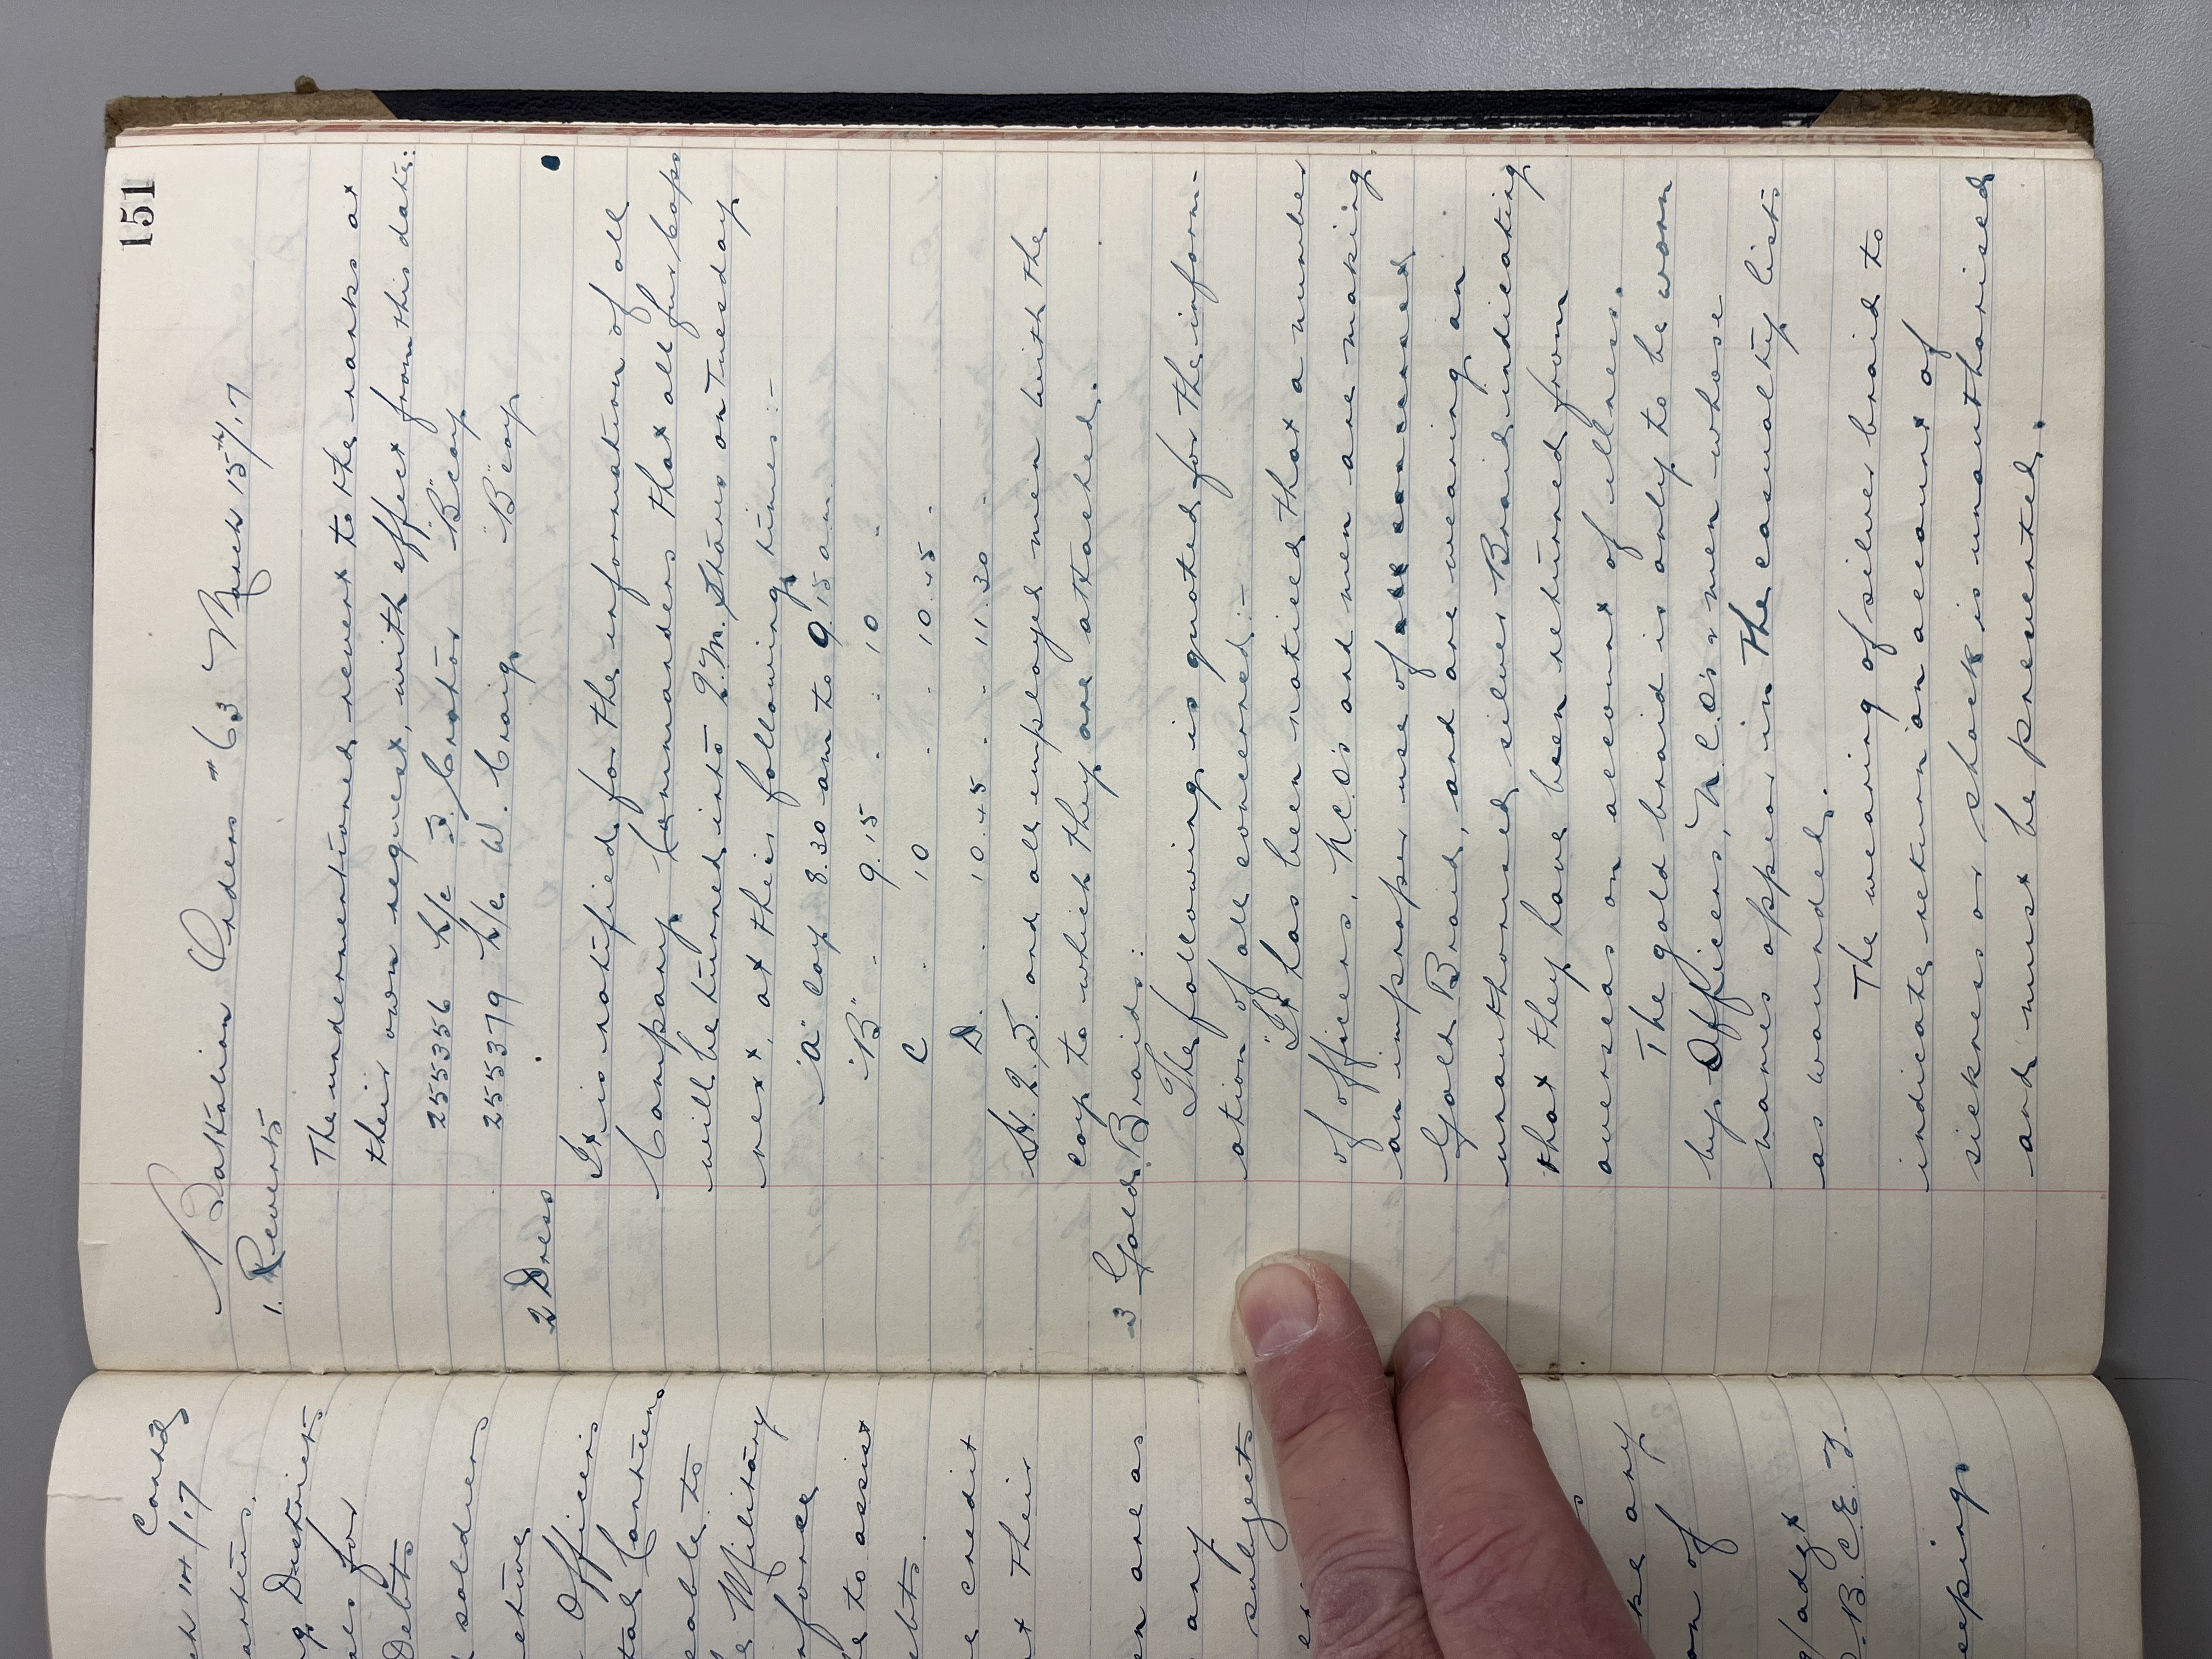 151
Battalion Orders #63 March 15th/17
1. Reverts
The undermentioned revert to the ranks at
their own request, with effect from this date:
255356 L/c J. Crator "B" Coy
255379 L/c. W. Craig "B" Coy
2 Dress
It is notified for the information of all
Company Commanders that all fur caps
will be turned into Q.M. Stores on Tuesday
next, at the following times:-
"A" Coy 8.30 am to 9.15 am
"B" " 9.15 " " 10 "
C " 10 " " 10.45 "
D. " 10.45 " " 11.30 "
H.Q.S. and all employed men with the
coy to which they are attached.
3 Gold Braids:
The following is quoted for the inform-
ation of all concerned:-
"It has been noticed that a number
of officers, N.C.O's and men are making
an improper use of all concerned
Gold Braid, and are wearing an
unauthorised silver Braid indicating
that they have been returned from
overseas on account of illness.
The gold braid is only to be worn
by Officers, N.C.O's & men whose
names appear in the casualty lists
as wounded.
The wearing of silver braid to
indicate return on account of
sickness or shock is unauthorised
and must be prevented.
Contd
14/17
Districts
for
Debts
soldiers
Officers
Canteens
to
Military
to assist
credit
Their
are as
any
subject
any
on of
/adgt
B.C.E.F.